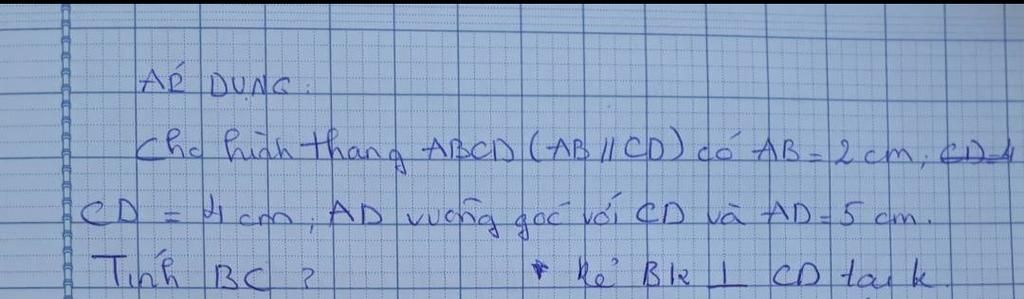 ÁP DỤNG:
Cho hình thang ABCD (AB // CD) có AB = 2 cm; CD = 4
CD = 4 cm, AD vuông góc với CD và AD = 5 cm.
Tính BC ? * kẻ BK ⊥ CD tại k